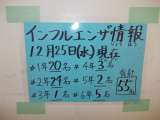 インフルエンザ情報
じょうほう
12月25日(水)現在
#1年20名 #4年3名
#2年24名 #5年2名
#3年1名 #6年5名
合計
55名